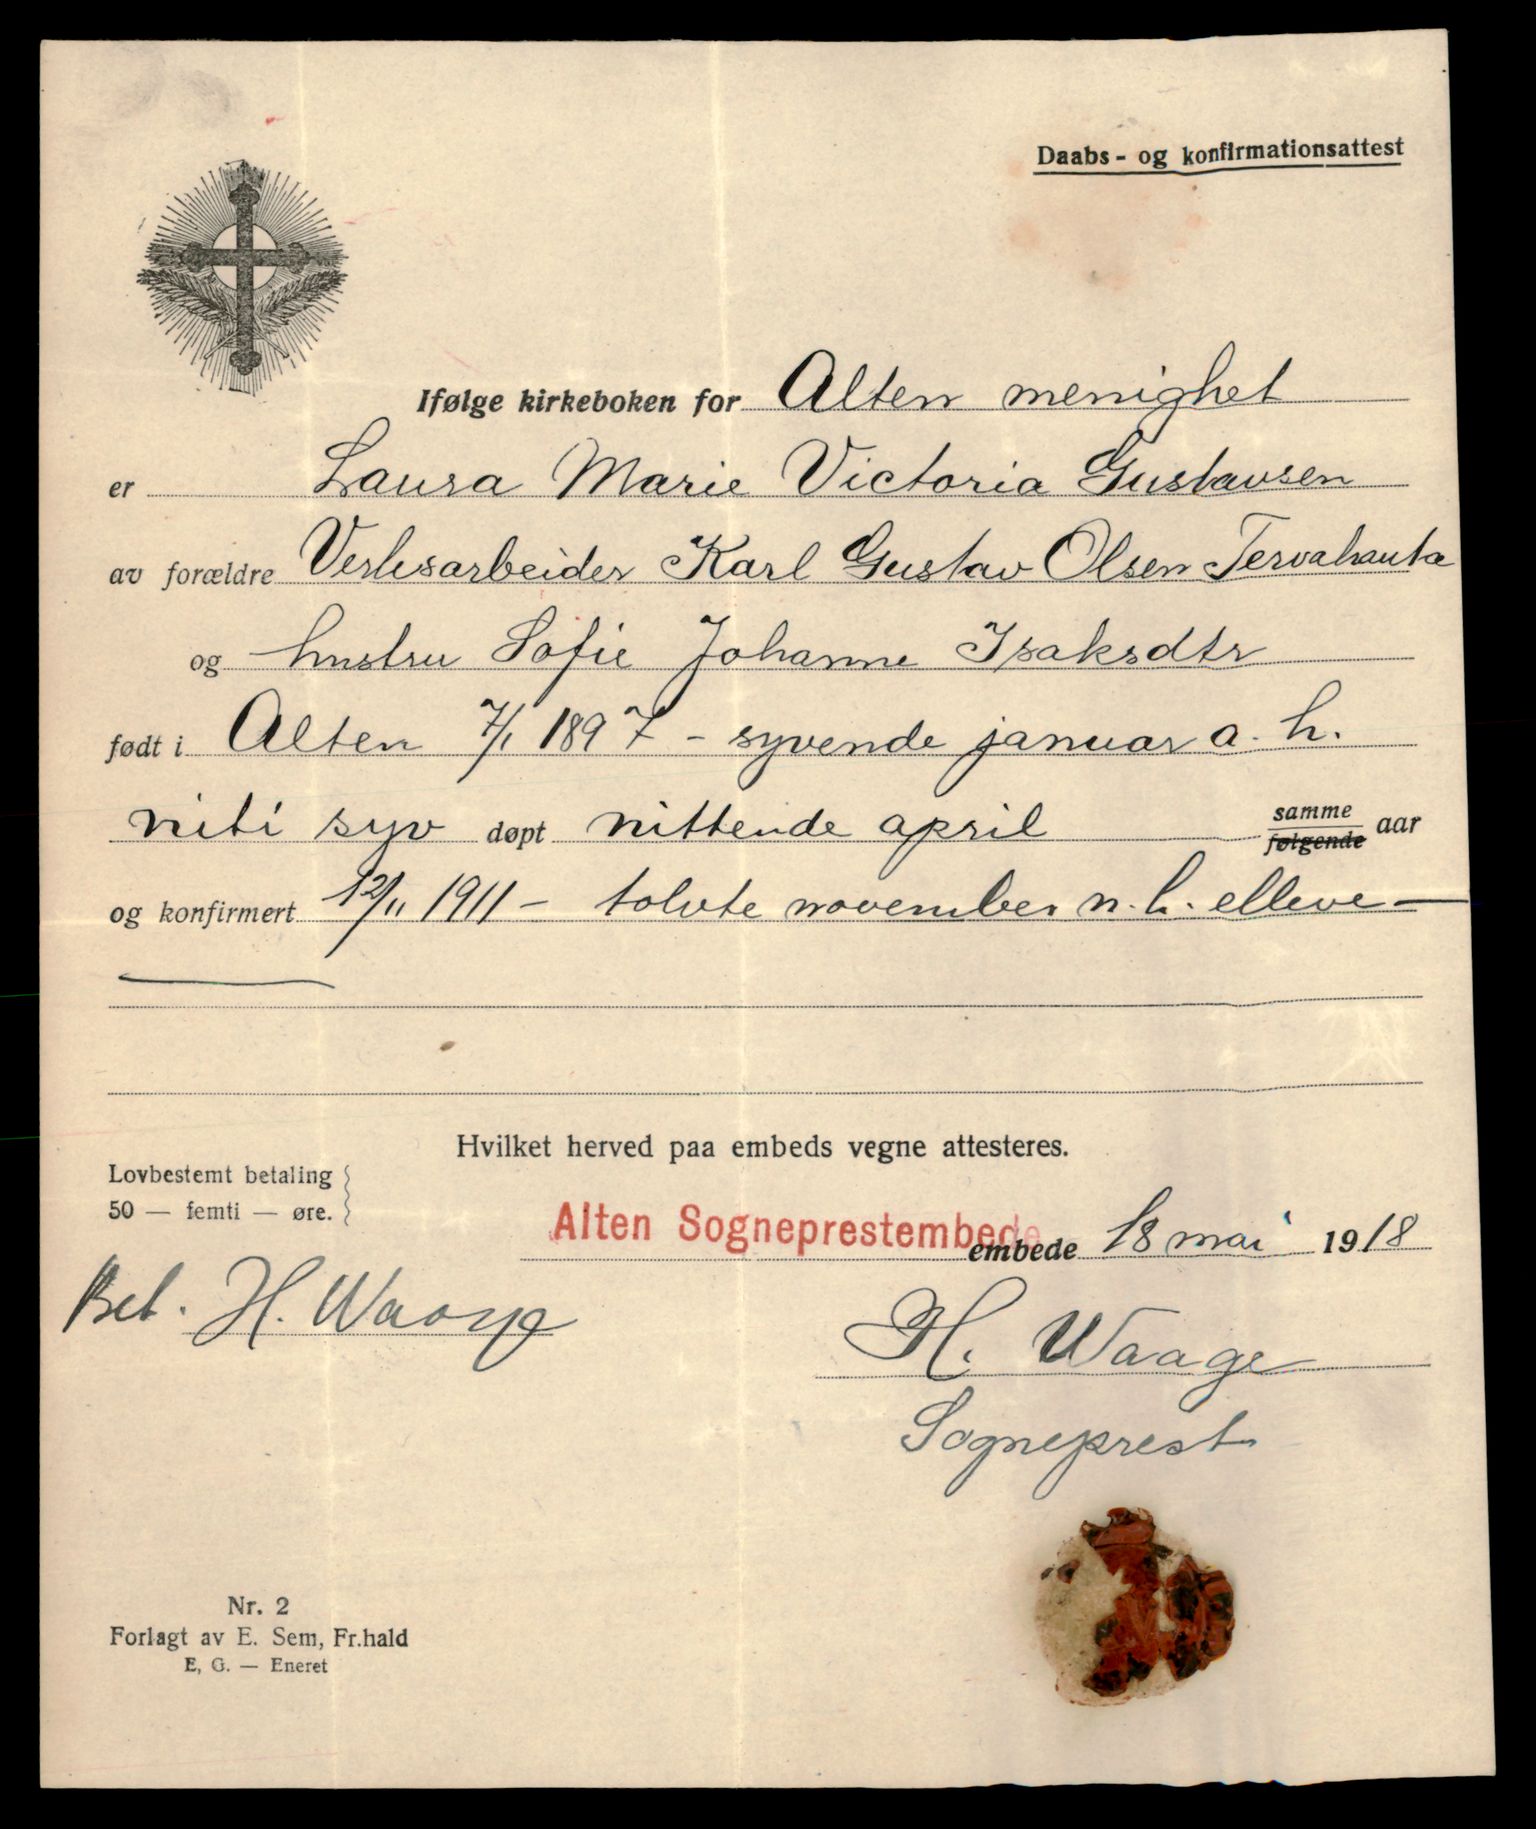 Daabs- og konfirmationsattest
Ifølge kirkeboken for Alten menighet
er Laura Marie Victoria Gustavsen
av forældre Verksarbeider Karl Gustav Olsen Tervahauta
og hustru Sofie Johanne Isaksdtr
født i Alten 7/1 1897 - syvende januar a. h.
niti syv døpt nittende april samme følgende aar
og konfirmert 12/11 1911 - tolvte november n. h. elleve -
Hvilket herved paa embeds vegne attesteres.
Lovbestemt betaling
50 — femti — øre.
Alten Sogneprestembede embede 18 mai 1918
Bet. H. Waage
H. Waage
Sogneprest
Nr. 2
Forlagt av E. Sem, Fr.hald
E, G. — Eneret